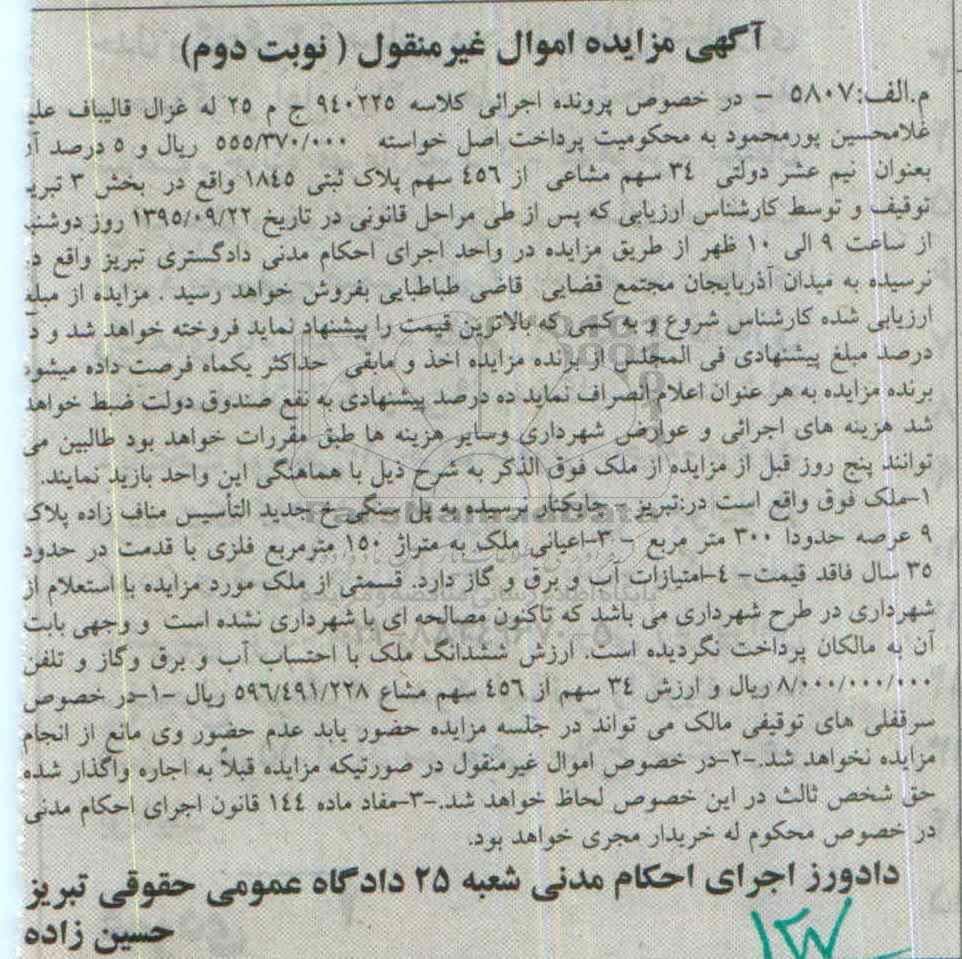 آگهی مزایده اموال غیرمنقول ( نوبت دوم)
م.الف:٥٨٠٧ - در خصوص پرونده اجرائی کلاسه ٩٤٠٢٢٥ ج م ٢٥ له غزال قالیباف علیه
غلامحسین پورمحمود به محکومیت پرداخت اصل خواسته ٥٥٥/٣٧٠/٠٠٠ ریال و ٥ درصد آن
بعنوان نیم عشر دولتی ٣٤ سهم مشاعی از ٤٥٦ سهم پلاک ثبتی ١٨٤٥ واقع در بخش ٣ تبریز
توقیف و توسط کارشناس ارزیابی که پس از طی مراحل قانونی در تاریخ ١٣٩٥/٠٩/٢٢ روز دوشنبه
از ساعت ٩ الی ١٠ ظهر از طریق مزایده در واحد اجرای احکام مدنی دادگستری تبریز واقع در
نرسیده به میدان آذربایجان مجتمع قضایی قاضی طباطبایی بفروش خواهد رسید . مزایده از مبلغ
ارزیابی شده کارشناس شروع و به کسی که بالاترین قیمت را پیشنهاد نماید فروخته خواهد شد و د
درصد مبلغ پیشنهادی فی المجلس از برنده مزایده اخذ و مابقی حداکثر یکماه فرصت داده میشود
برنده مزایده به هر عنوان اعلام انصراف نماید ده درصد پیشنهادی به نفع صندوق دولت ضبط خواهد
شد هزینه های اجرائی و عوارض شهرداری وسایر هزینه ها طبق مقررات خواهد بود طالبین می
توانند پنج روز قبل از مزایده از ملک فوق الذکر به شرح ذیل با هماهنگی این واحد بازید نمایند.
١-ملک فوق واقع است در:تبریز - چایکنار نرسیده به پل سنگی خ جدید التأسیس مناف زاده پلاک
٩ عرصه حدودا ٣٠٠ متر مربع - ٣-اعیانی ملک به متراژ ١٥٠ مترمربع فلزی با قدمت در حدود
٣٥ سال فاقد قیمت- ٤-امتیازات آب و برق و گاز دارد. قسمتی از ملک مورد مزایده با استعلام از
شهرداری در طرح شهرداری می باشد که تاکنون مصالحه ای با شهرداری نشده است و وجهی بابت
آن به مالکان پرداخت نگردیده است. ارزش ششدانگ ملک با احتساب آب و برق وگاز و تلفن
٨/٠٠٠/٠٠٠/٠٠٠ ریال و ارزش ٣٤ سهم از ٤٥٦ سهم مشاع ٥٩٦/٤٩١/٢٢٨ ریال -١-در خصوص
سرقفلی های توقیفی مالک می تواند در جلسه مزایده حضور یابد عدم حضور وی مانع از انجام
مزایده نخواهد شد.-٢-در خصوص اموال غیرمنقول در صورتیکه مزایده قبلاً به اجاره واگذار شده
حق شخص ثالث در این خصوص لحاظ خواهد شد.-٣-مفاد ماده ١٤٤ قانون اجرای احکام مدنی
در خصوص محکوم له خریدار مجری خواهد بود.
دادورز اجرای احکام مدنی شعبه ٢٥ دادگاه عمومی حقوقی تبریز
حسین زاده